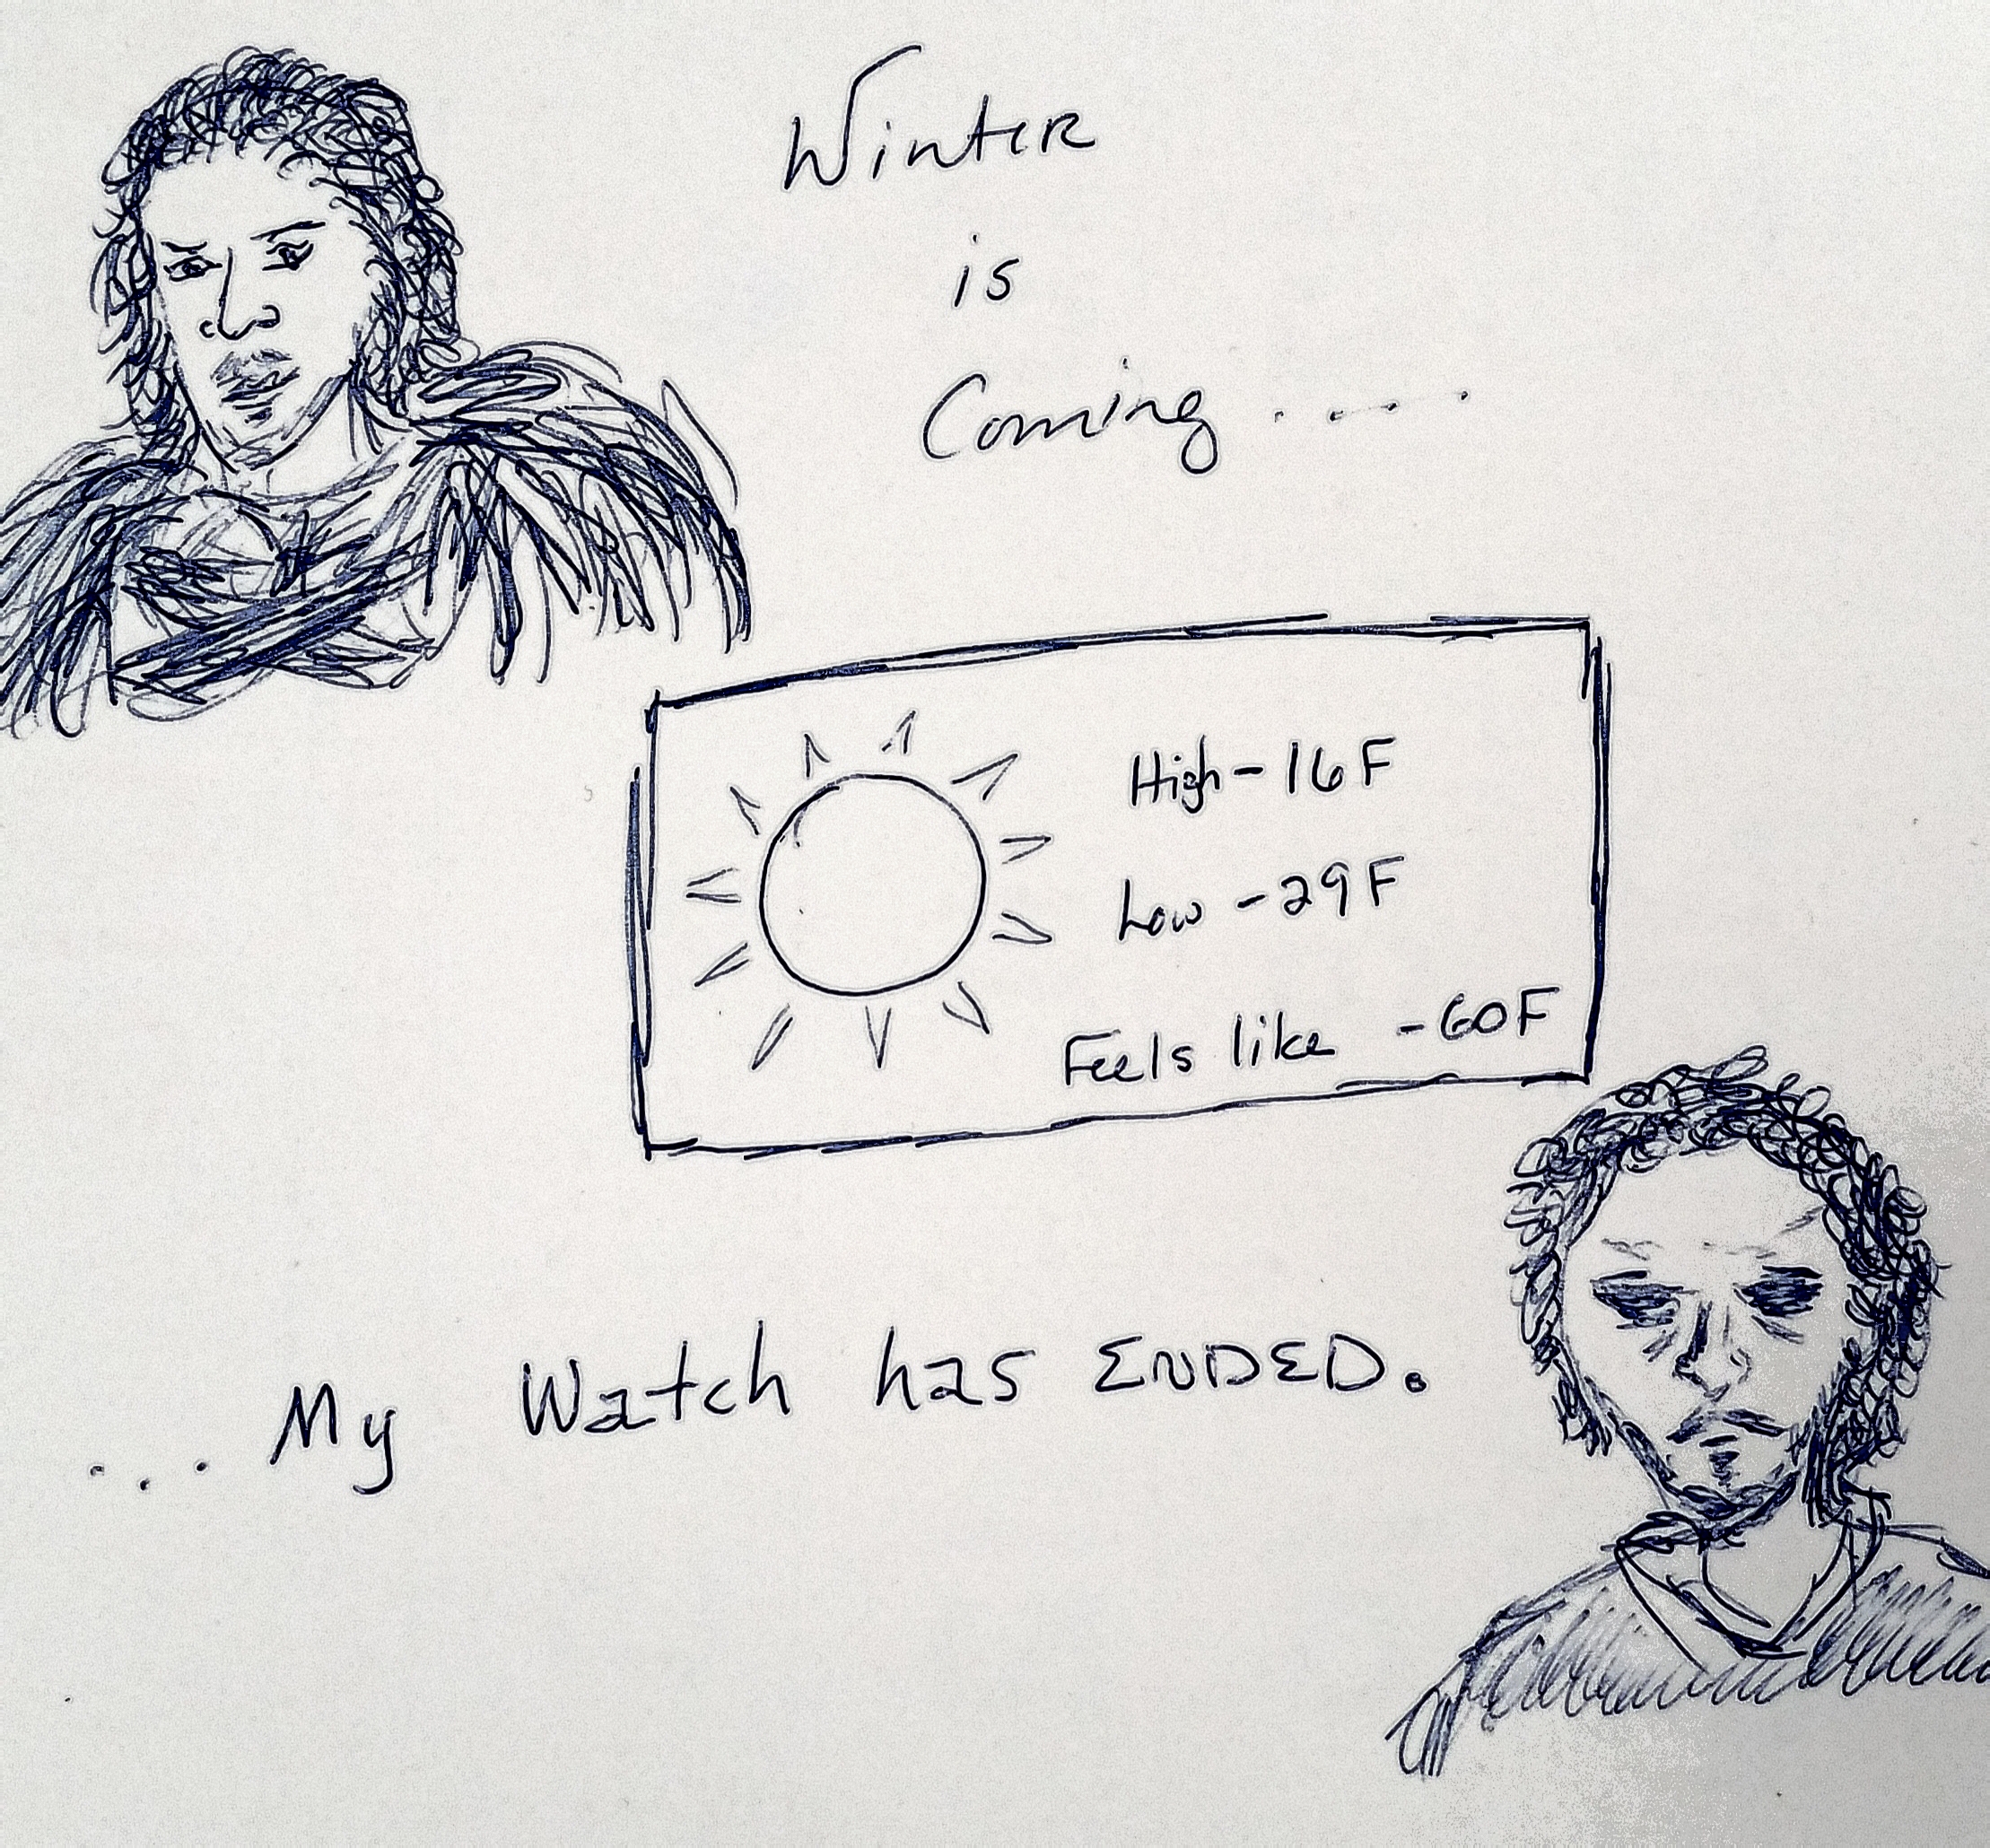 Winter
is
Coming....
High -16F
Low -29F
Feels like -60F
... My Watch has ENDED.